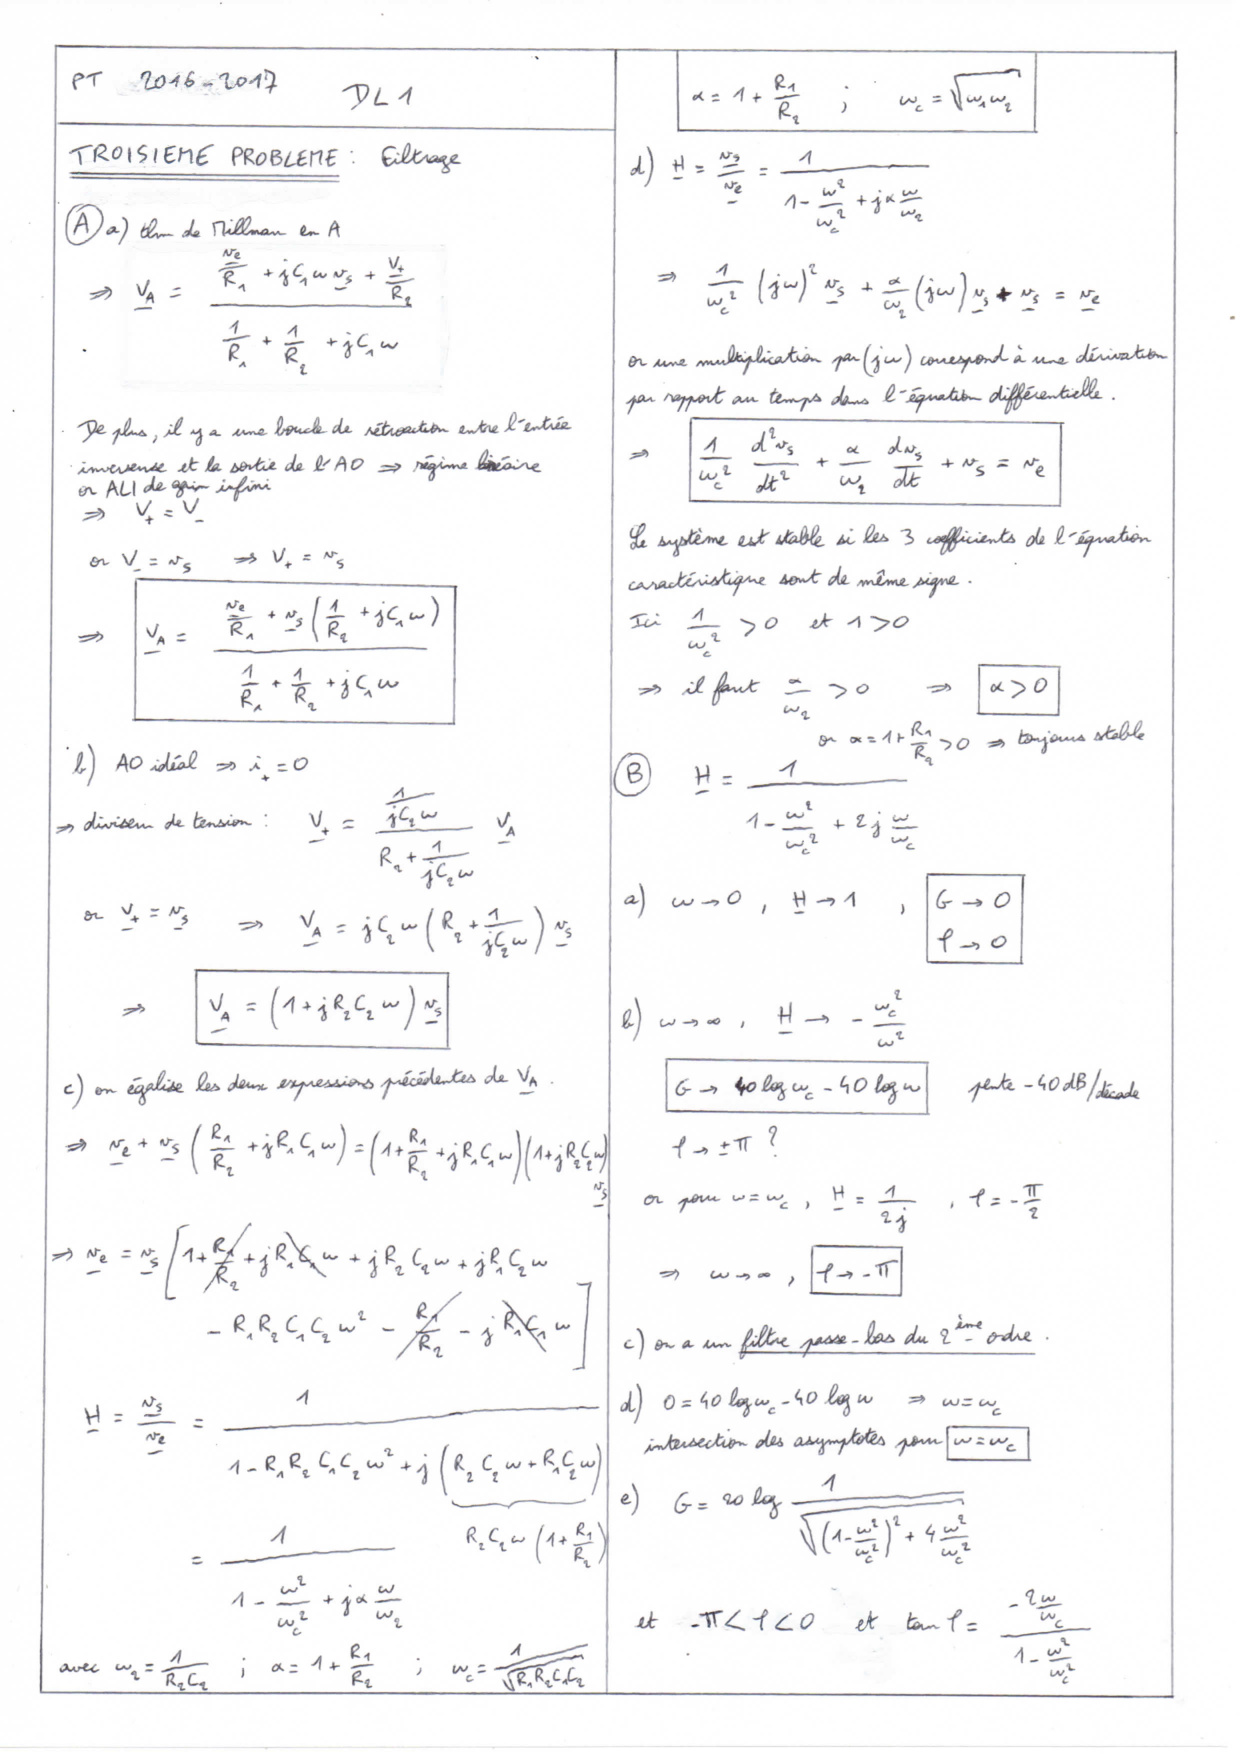 PT 2016-2017
DL 1
TROISIEME PROBLEME : Filtrage
(A) a) thm de Millman en A
⇒ V_A = (v_e/R_1 + jC_1ω v_s + V_+/R_2) / (1/R_1 + 1/R_2 + jC_1ω)
De plus, il y a une boucle de rétroaction entre l'entrée
inverseuse et la sortie de l'AO ⇒ régime linéaire
or ALI de gain infini
⇒ V_+ = V_-
or V_- = v_s ⇒ V_+ = v_s
⇒ V_A = (v_e/R_1 + v_s (1/R_2 + jC_1ω)) / (1/R_1 + 1/R_2 + jC_1ω)
b) AO idéal ⇒ i_+ = 0
⇒ diviseur de tension : V_+ = (1/(jC_2ω)) / (R_2 + 1/(jC_2ω)) V_A
or V_+ = v_s ⇒ V_A = jC_2ω (R_2 + 1/(jC_2ω)) v_s
⇒ V_A = (1 + jR_2C_2ω) v_s
c) on égalise les deux expressions précédentes de V_A.
⇒ v_e + v_s (R_1/R_2 + jR_1C_1ω) = (1 + R_1/R_2 + jR_1C_1ω)(1 + jR_2C_2ω) v_s
⇒ v_e = v_s [1 + R_1/R_2 + jR_1C_1ω + jR_2C_2ω + jR_1C_2ω
- R_1R_2C_1C_2ω² - R_1/R_2 - jR_1C_1ω]
H = v_s/v_e = 1 / (1 - R_1R_2C_1C_2ω² + j(R_2C_2ω + R_1C_2ω))
R_2C_2ω (1 + R_1/R_2)
= 1 / (1 - ω²/ω_c² + jα ω/ω_2)
avec ω_2 = 1/(R_2C_2) ; α = 1 + R_1/R_2 ; ω_c = 1/√(R_1R_2C_1C_2)
α = 1 + R_1/R_2 ; ω_c = √(ω_1ω_2)
d) H = v_s/v_e = 1 / (1 - ω²/ω_c² + jα ω/ω_2)
⇒ 1/ω_c² (jω)² v_s + α/ω_2 (jω) v_s + v_s = v_e
or une multiplication par (jω) correspond à une dérivation
par rapport au temps dans l'équation différentielle.
⇒ 1/ω_c² d²v_s/dt² + α/ω_2 dv_s/dt + v_s = v_e
Le système est stable si les 3 coefficients de l'équation
caractéristique sont de même signe.
Ici 1/ω_c² > 0 et 1 > 0
⇒ il faut α/ω_2 > 0 ⇒ α > 0
or α = 1 + R_1/R_2 > 0 ⇒ toujours stable
(B) H = 1 / (1 - ω²/ω_c² + 2j ω/ω_c)
a) ω → 0 , H → 1 , G → 0
φ → 0
b) ω → ∞ , H → - ω_c²/ω²
G → 40 log ω_c - 40 log ω pente - 40 dB/décade
φ → ±π ?
or pour ω = ω_c , H = 1/(2j) , φ = -π/2
⇒ ω → ∞ , φ → -π
c) on a un filtre passe-bas du 2ème ordre.
d) 0 = 40 log ω_c - 40 log ω ⇒ ω = ω_c
intersection des asymptotes pour ω = ω_c
e) G = 20 log 1 / √((1 - ω²/ω_c²)² + 4 ω²/ω_c²)
et -π < φ < 0 et tan φ = (-2ω/ω_c) / (1 - ω²/ω_c²)